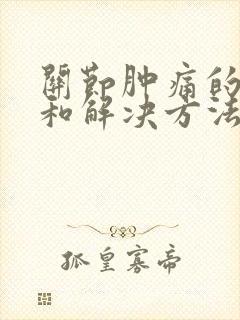 關節肿痛的
和解决方法
孤皇寡帝